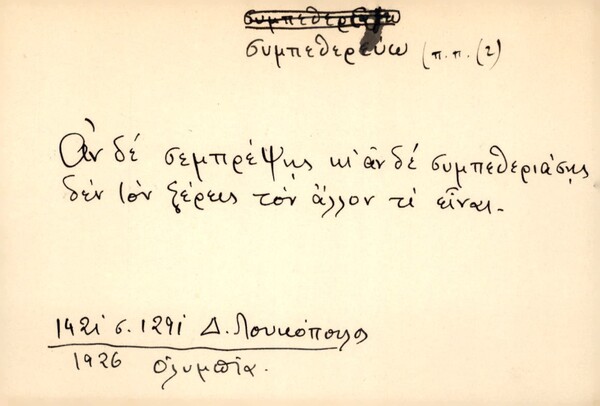 συμπεθερεύω (π.π. (2)
Ἂν δέ σεμπρέψῃς κι' ἂν δέ συμπεθεριάσῃς
δέν τόν ξέρεις τόν ἄλλον τί εἶναι.
1421 σ. 1291 Δ. Λουκόπουλος
1926 Ὀλυμπία.